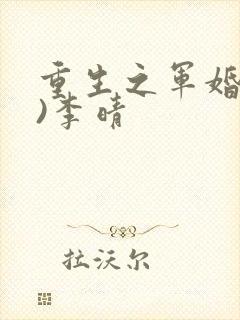 重生之军婚
)李晴
拉沃尔